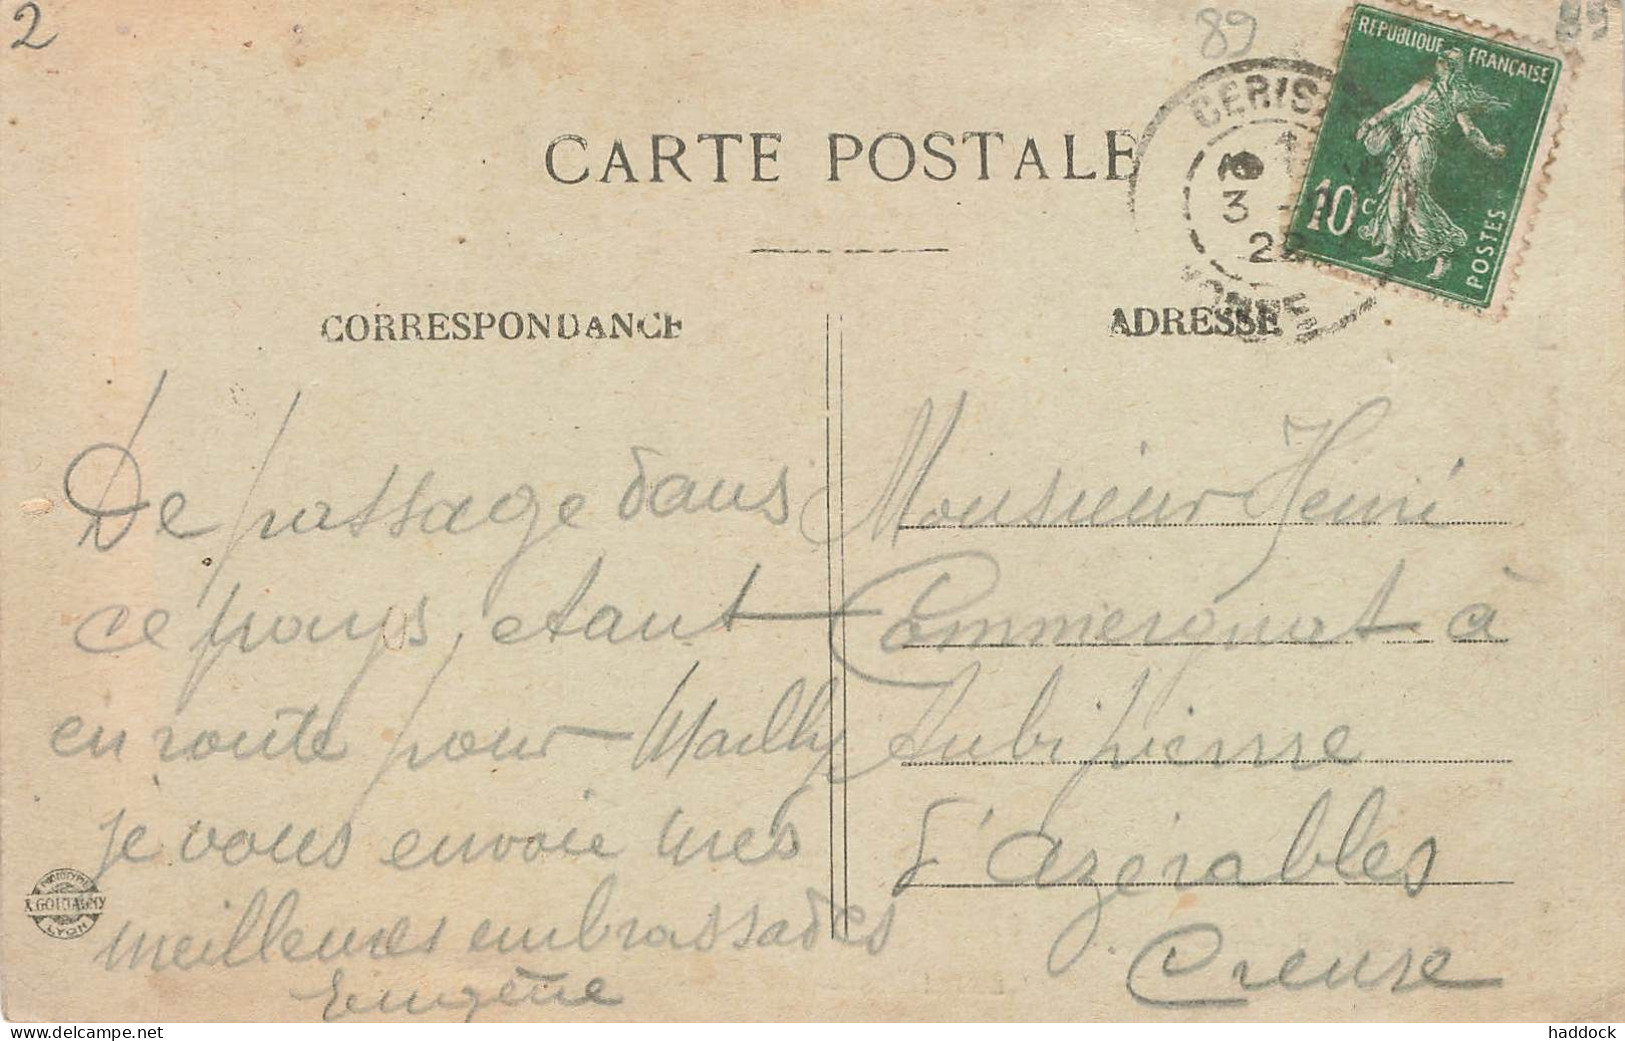 2
89
89
REPUBLIQUE FRANÇAISE
10c
POSTES
CERIS
3
22
YONNE
CARTE POSTALE
CORRESPONDANCE
De passage dans
ce pays, etant
en route pour Mailly
je vous envoie mes
meilleures embrassades
Eugène
PHOTOTYPIE
A. GOUTAGNY
LYON
ADRESSE
Monsieur Henri
Commergnat à
Aubipierre
d'azérables
Creuse
delcampe.net
haddock